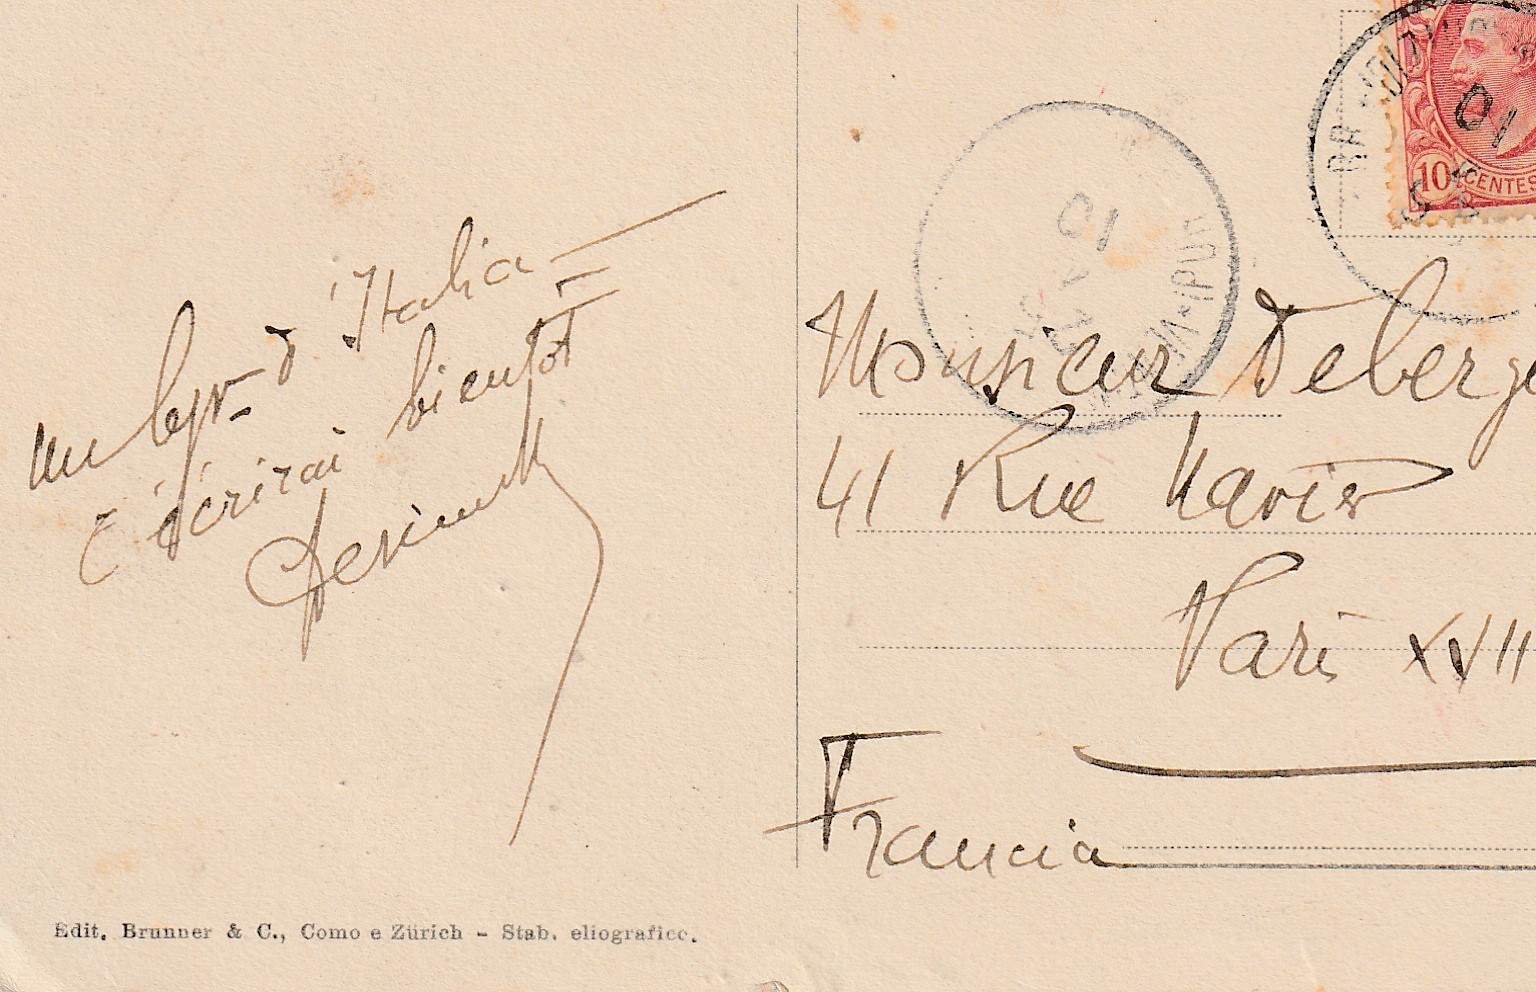 un bjr d'Italia
t'écrirai bientôt
Monsieur Deberge
41 Rue Navier
Paris XVII
Francia
10 CENTES
10
10
Edit. Brunner & C., Como e Zürich - Stab. eliografico.